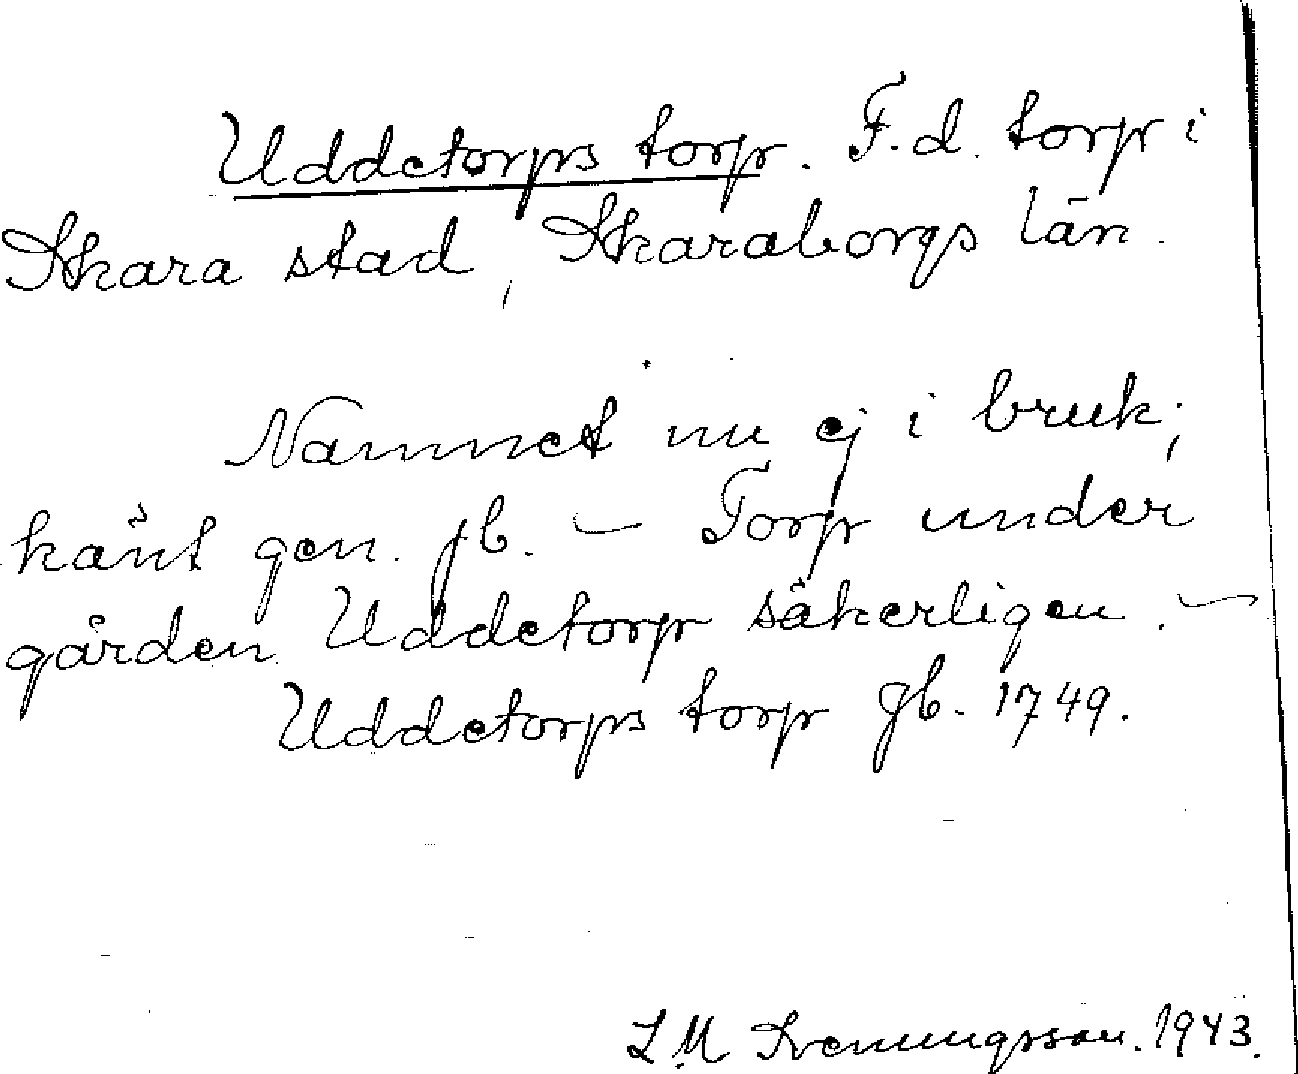 Uddetorps torp. F.d. torp i
Skara stad, Skaraborgs län.
Namnet nu ej i bruk;
känt gen. jb. – Torp under
gården Uddetorp säkerligen. –
Uddetorps torp gb. 1749.
L M Svenungsson. 1943.